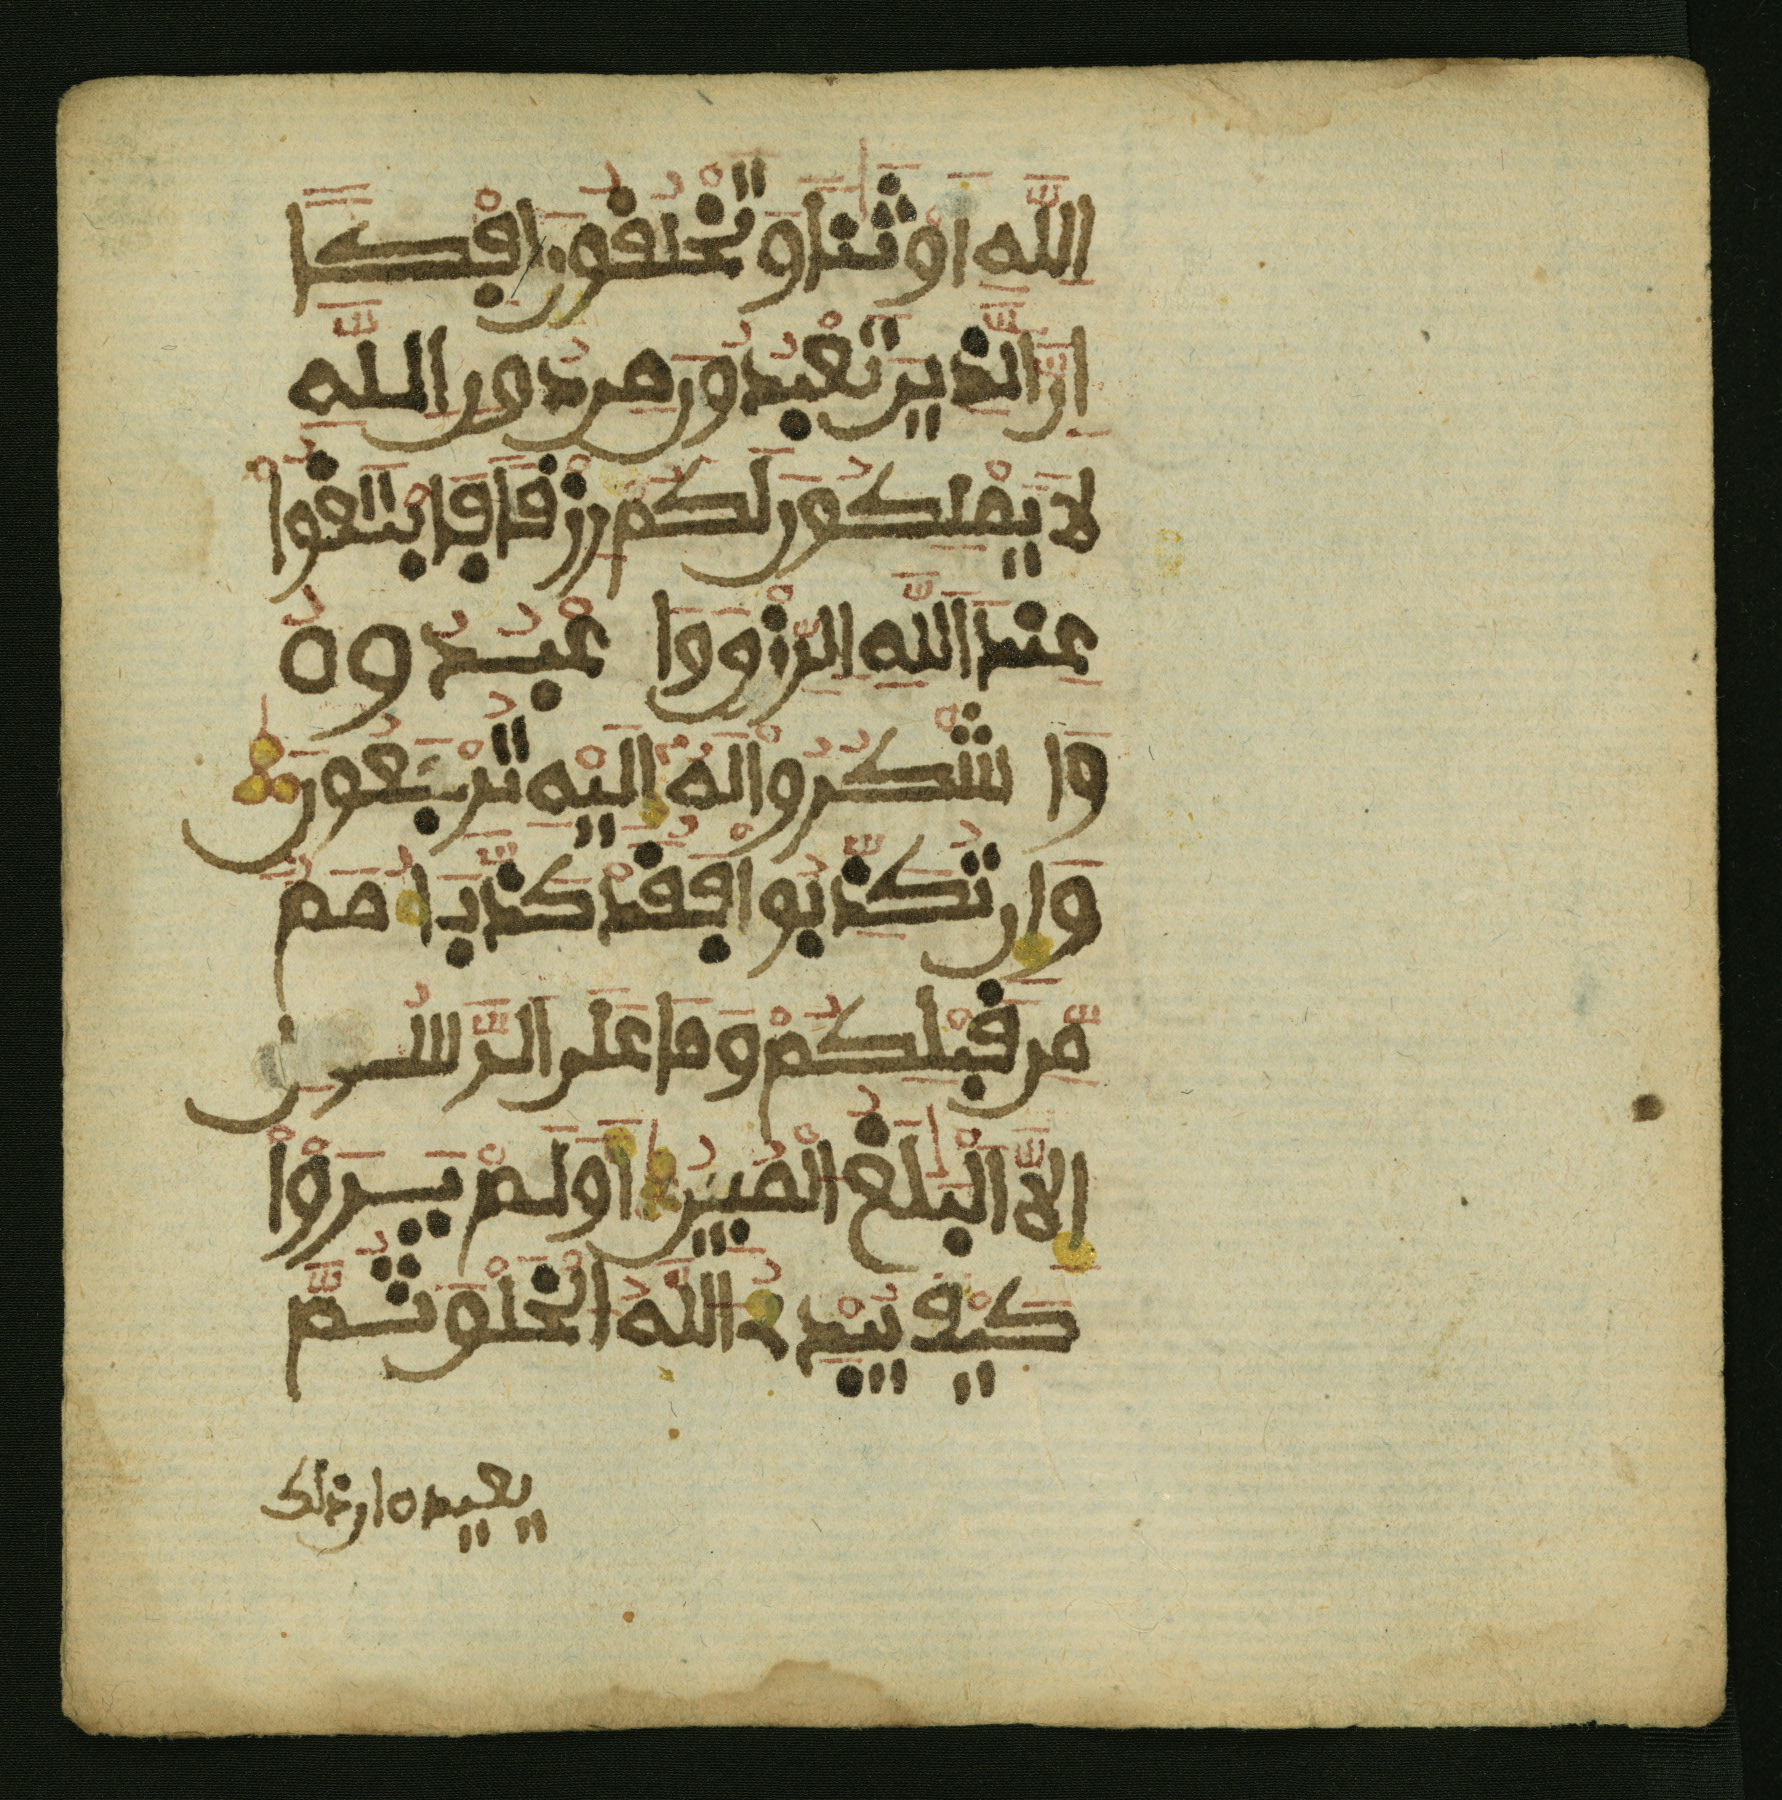 اللَّهِ أَوْثَٰنًا وَتَخْلُقُونَ إِفْكًا
إِنَّ الَّذِينَ تَعْبُدُونَ مِن دُونِ اللَّهِ
لَا يَمْلِكُونَ لَكُمْ رِزْقًا فَابْتَغُوا
عِندَ اللَّهِ الرِّزْقَ وَاعْبُدُوهُ
وَاشْكُرُوا لَهُ إِلَيْهِ تُرْجَعُونَ
وَإِن تُكَذِّبُوا فَقَدْ كَذَّبَ أُمَمٌ
مِّن قَبْلِكُمْ وَمَا عَلَى الرَّسُولِ
إِلَّا الْبَلَٰغُ الْمُبِينُ أَوَلَمْ يَرَوْا
كَيْفَ يُبْدِئُ اللَّهُ الْخَلْقَ ثُمَّ
يعيده ان ذلك